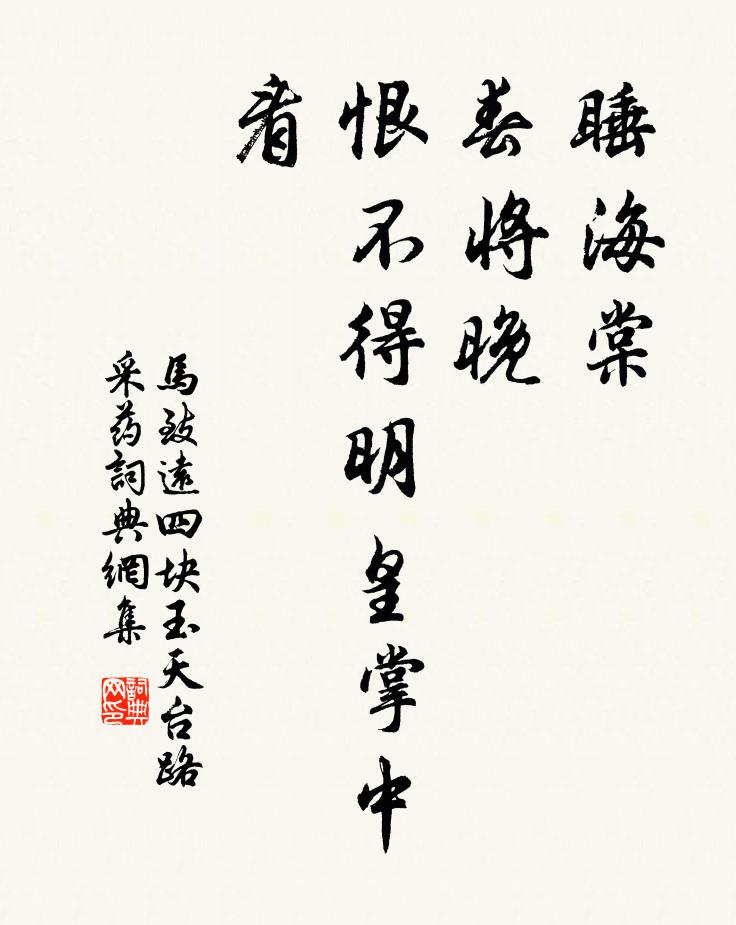 睡海棠
春將晚
恨不得明皇掌中
看
馬致遠四块玉天台路
采药詞典網集
詞典网印